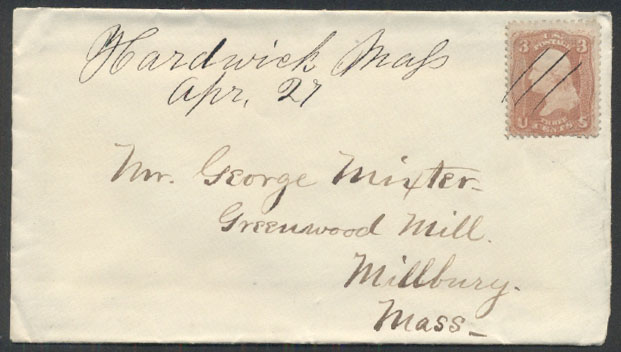 Hardwick Mass
Apr. 27
3 U.S. 3
POSTAGE
U THREE S
CENTS
Mr. George Mixter
Greenwood Mill.
Millbury.
Mass